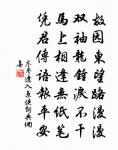 故園東望路漫漫
雙袖龍鐘淚不干
馬上相逢無紙筆
憑君傳語報平安
岑參逢入京使詞典網